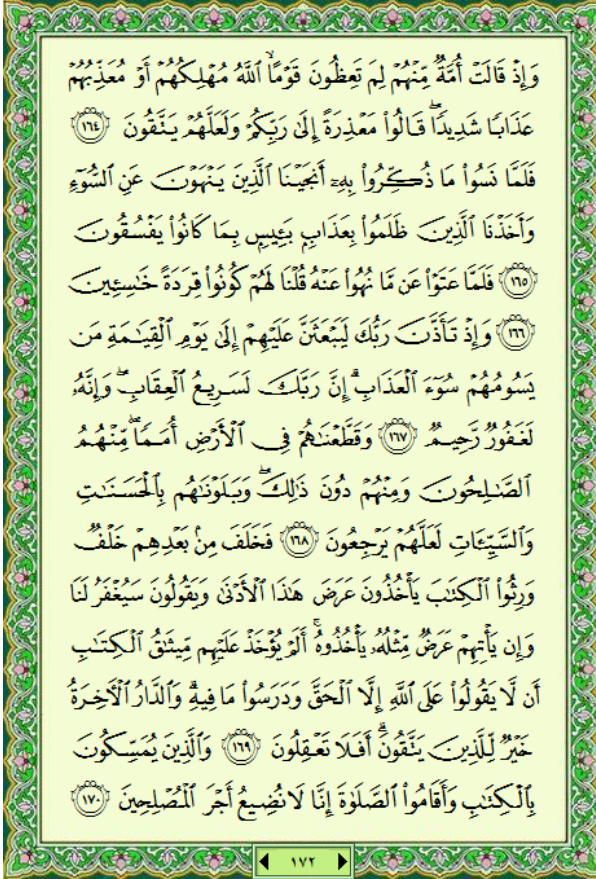 وَإِذْ قَالَتْ أُمَّةٌ مِّنْهُمْ لِمَ تَعِظُونَ قَوْمًا ۙ ٱللَّهُ مُهْلِكُهُمْ أَوْ مُعَذِّبُهُمْ
عَذَابًا شَدِيدًا ۖ قَالُوا۟ مَعْذِرَةً إِلَىٰ رَبِّكُمْ وَلَعَلَّهُمْ يَتَّقُونَ ﴿١٦٤﴾
فَلَمَّا نَسُوا۟ مَا ذُكِّرُوا۟ بِهِۦٓ أَنجَيْنَا ٱلَّذِينَ يَنْهَوْنَ عَنِ ٱلسُّوٓءِ
وَأَخَذْنَا ٱلَّذِينَ ظَلَمُوا۟ بِعَذَابٍۭ بَـِٔيسٍۭ بِمَا كَانُوا۟ يَفْسُقُونَ
﴿١٦٥﴾ فَلَمَّا عَتَوْا۟ عَن مَّا نُهُوا۟ عَنْهُ قُلْنَا لَهُمْ كُونُوا۟ قِرَدَةً خَـٰسِـِٔينَ
﴿١٦٦﴾ وَإِذْ تَأَذَّنَ رَبُّكَ لَيَبْعَثَنَّ عَلَيْهِمْ إِلَىٰ يَوْمِ ٱلْقِيَـٰمَةِ مَن
يَسُومُهُمْ سُوٓءَ ٱلْعَذَابِ ۗ إِنَّ رَبَّكَ لَسَرِيعُ ٱلْعِقَابِ ۖ وَإِنَّهُۥ
لَغَفُورٌ رَّحِيمٌ ﴿١٦٧﴾ وَقَطَّعْنَـٰهُمْ فِى ٱلْأَرْضِ أُمَمًا ۖ مِّنْهُمُ
ٱلصَّـٰلِحُونَ وَمِنْهُمْ دُونَ ذَٰلِكَ ۖ وَبَلَوْنَـٰهُم بِٱلْحَسَنَـٰتِ
وَٱلسَّيِّـَٔاتِ لَعَلَّهُمْ يَرْجِعُونَ ﴿١٦٨﴾ فَخَلَفَ مِنۢ بَعْدِهِمْ خَلْفٌ
وَرِثُوا۟ ٱلْكِتَـٰبَ يَأْخُذُونَ عَرَضَ هَـٰذَا ٱلْأَدْنَىٰ وَيَقُولُونَ سَيُغْفَرُ لَنَا
وَإِن يَأْتِهِمْ عَرَضٌ مِّثْلُهُۥ يَأْخُذُوهُ ۚ أَلَمْ يُؤْخَذْ عَلَيْهِم مِّيثَـٰقُ ٱلْكِتَـٰبِ
أَن لَّا يَقُولُوا۟ عَلَى ٱللَّهِ إِلَّا ٱلْحَقَّ وَدَرَسُوا۟ مَا فِيهِ ۗ وَٱلدَّارُ ٱلْـَٔاخِرَةُ
خَيْرٌ لِّلَّذِينَ يَتَّقُونَ ۗ أَفَلَا تَعْقِلُونَ ﴿١٦٩﴾ وَٱلَّذِينَ يُمَسِّكُونَ
بِٱلْكِتَـٰبِ وَأَقَامُوا۟ ٱلصَّلَوٰةَ إِنَّا لَا نُضِيعُ أَجْرَ ٱلْمُصْلِحِينَ ﴿١٧٠﴾
١٧٢